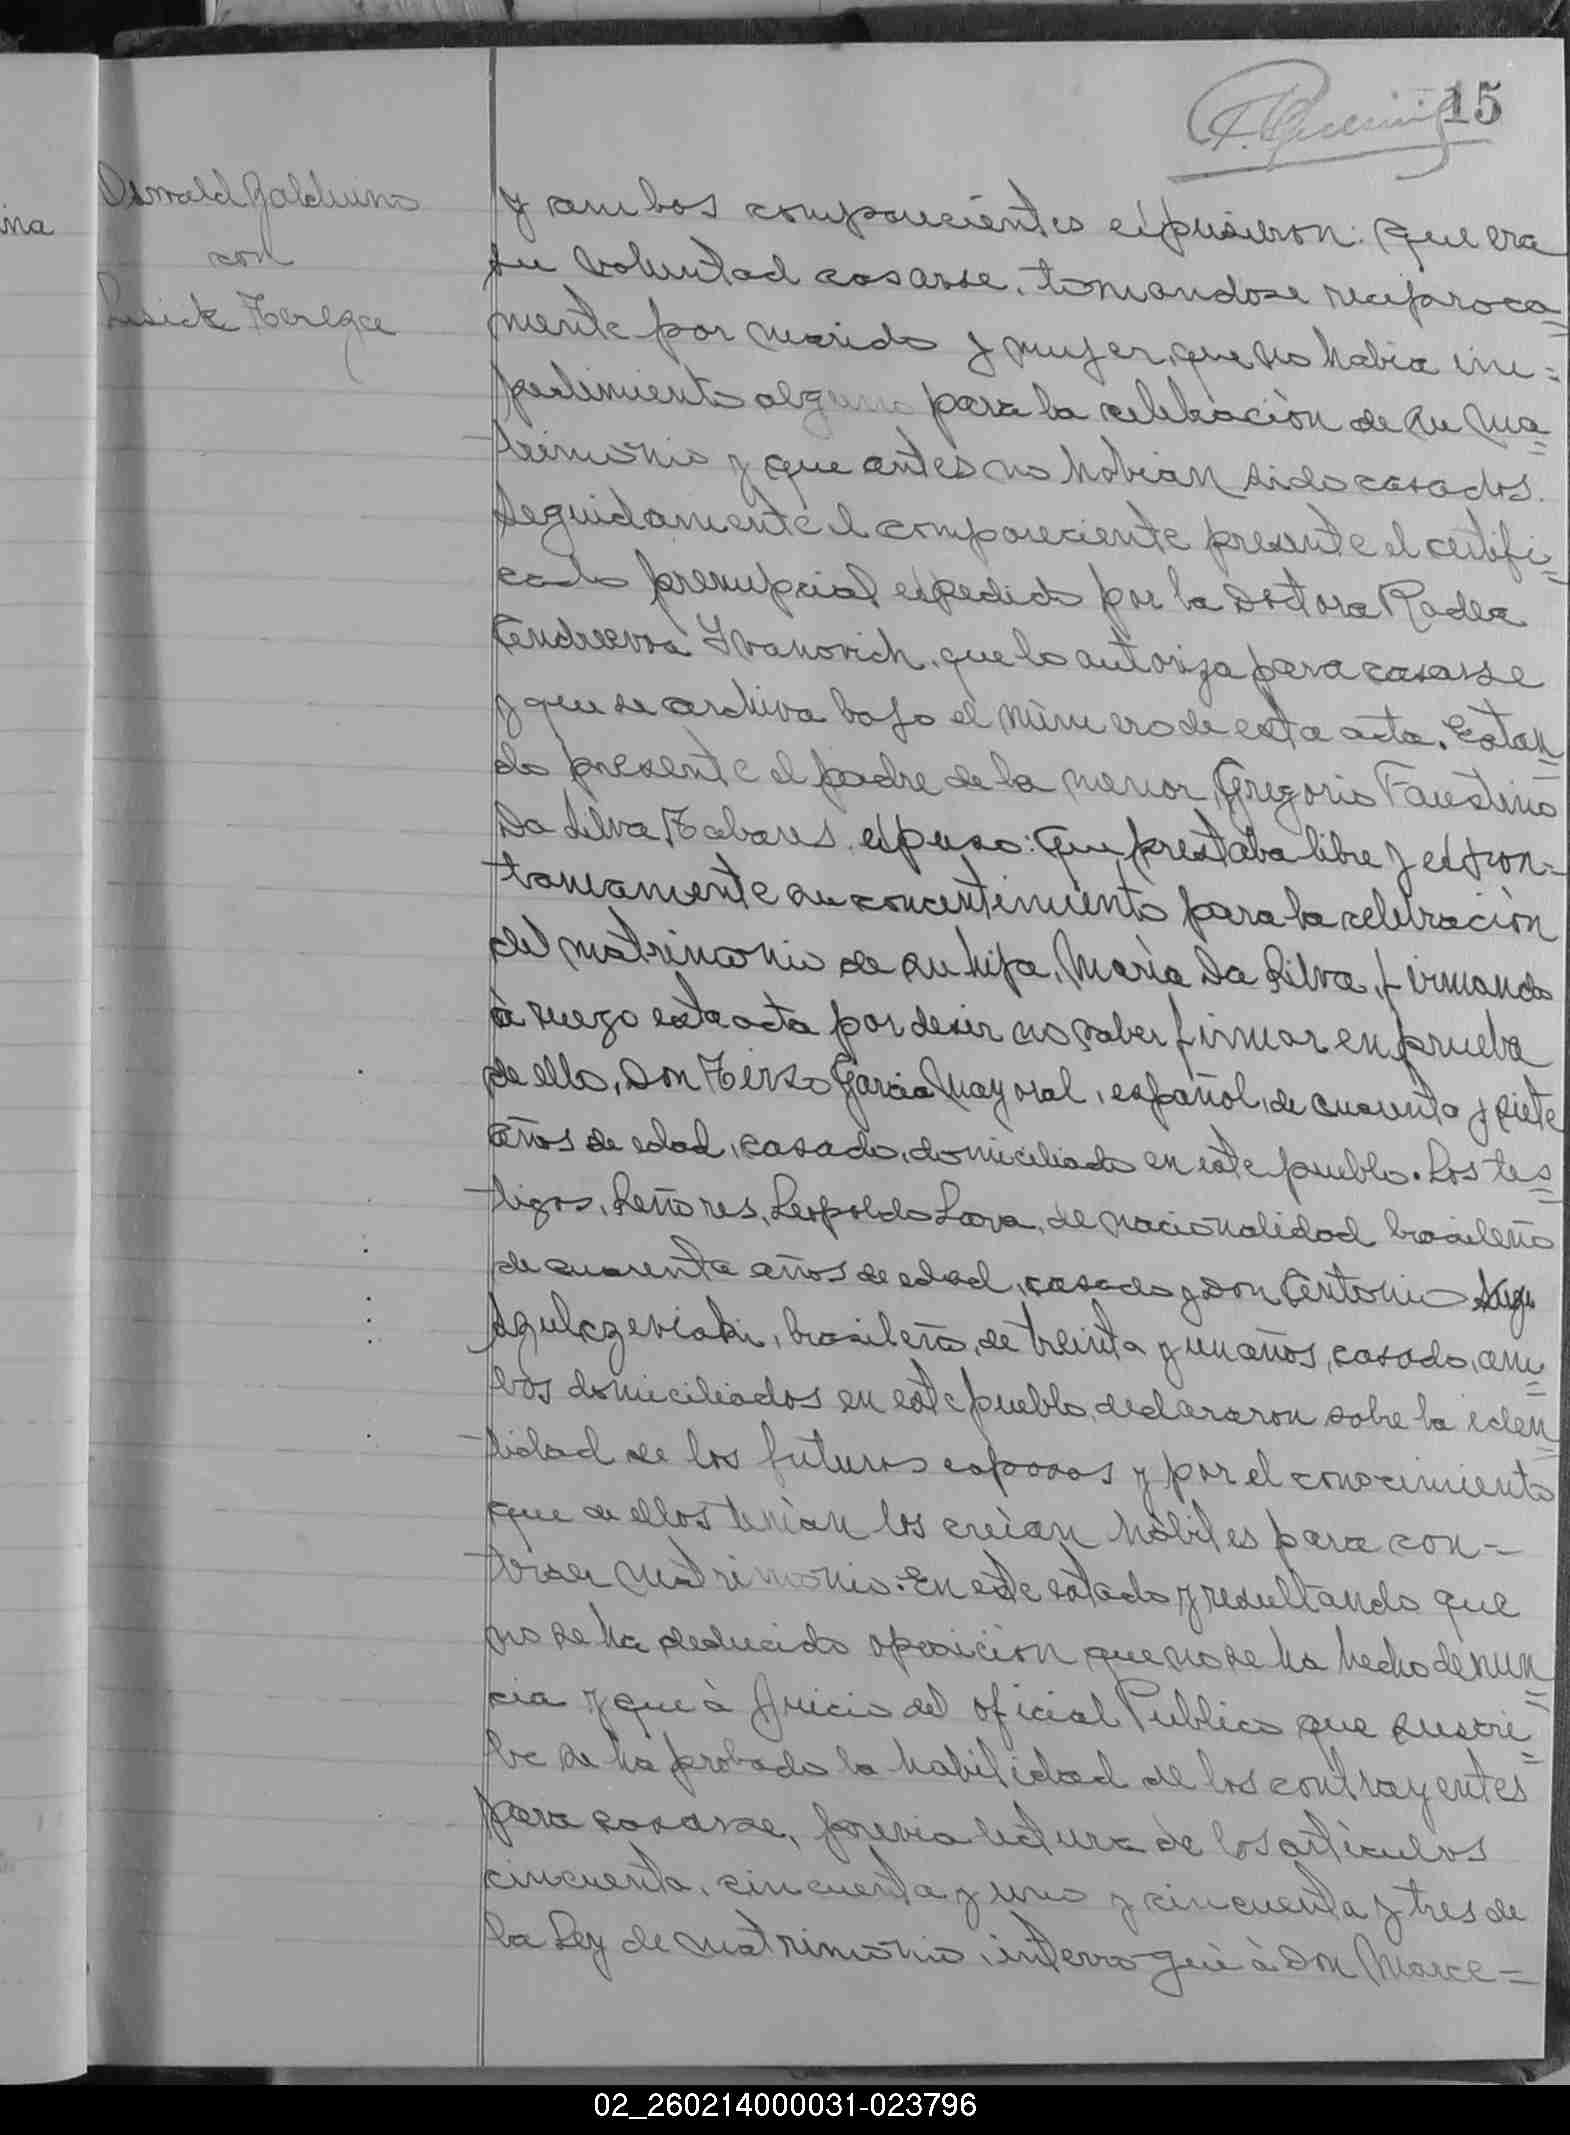 15
ina
Oswald Balduino
con
Lusick Tereza
y ambos comparecientes expusieron: que era
su voluntad casarse, tomandose reciproca=
mente por marido y mujer, que no habia im=
pedimiento alguno para la celebración de su ma=
trimonio y que antes no habian sido casados.
Seguidamente el compareciente presente el certifi=
cado prenupcial expedido por la Doctora Rodea
Ivanovich, que lo autoriza para casarse
y que se archiva bajo el número de esta acta. Estan=
do presente el padre de la menor, Gregorio Faustino
Da Silva Tabares, expuso: Que prestaba libre y expon=
taneamente su concentimiento para la celebración
del matrimonio de su hija, Maria Da Silva, firmando
à ruego esta acta por desir no saber firmar en prueba
de ello, Don Tirso Garcia Mayoral, español, de cuarenta y siete
años de edad, casado, domiciliado en este pueblo. Los tes=
tigos, Señores, Leopoldo Lara, de nacionalidad brasileño
de cuarenta años de edad, casado y Don Antonio
Szulczeviski, brasileño, de treinta y un años, casado, am=
bos domiciliados en este pueblo, declararon sobre la iden=
tidad de los futuros esposos y por el conocimiento
que de ellos tenian los creian hábiles para con=
traer matrimonio. En este estado y resultando que
no se ha deducido oposición que no se ha hecho denun=
cia y que à juicio del oficial Publico que suscri=
be se ha probado la habilidad de los contrayentes
para casarse, previa lectura de los articulos
cincuenta, cincuenta y uno y cincuenta y tres de
la Ley de matrimonio, interrogué à Don Marce=
02_260214000031-023796